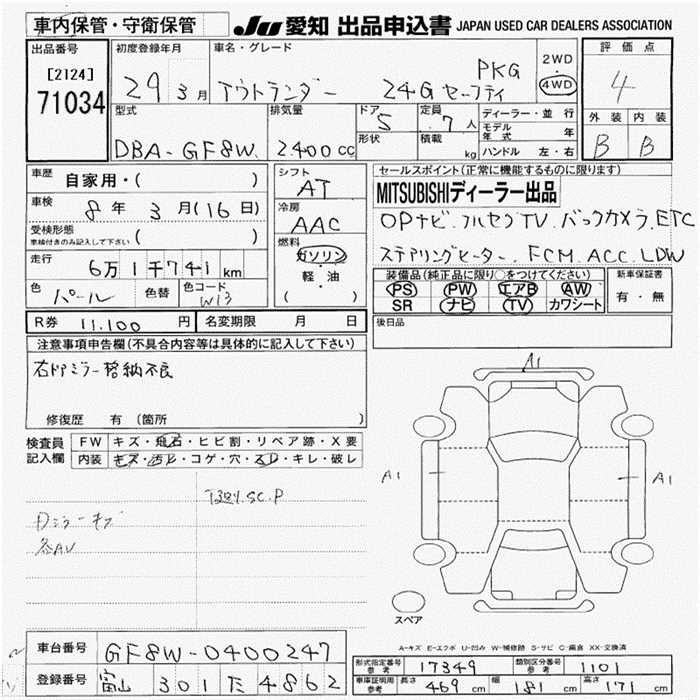 車内保管・守衛保管 JU 愛知 出品申込書 JAPAN USED CAR DEALERS ASSOCIATION
出品番号 初度登録年月 車名・グレード 評価点
[2124] 71034
29 3月 アウトランダー 24G セーフティ PKG 2WD 4WD
4
型式 排気量 ドア 定員 ディーラー・並行 外装 内装
DBA-GF8W 2,400cc 5 7人 モデル年式 年 B B
形状 積載 kg ハンドル 左・右
車歴 自家用・( ) シフト AT セールスポイント(正常に機能するものに限ります)
車検 8年 3月(16日) 冷房 AAC MITSUBISHIディーラー出品
受検形態 車検付きのみ記入して下さい ( ) 燃料 ガソリン 軽・油 ( )
OPナビ.フルセグTV.バックカメラ.ETC
ステアリングヒーター.FCM.ACC.LDW
走行 6万1千741km
色 パール 色替 色コード W13
装備品(純正品に限り○をつけてください) 新車保証書
PS PW エアB AW 有・無
SR ナビ TV カワシート
R券 11,100円 名変期限 月 日 後日品
注意事項申告欄(不具合内容等は具体的に記入して下さい)
右ドアミラー格納不良
修復歴 有 (箇所 )
検査員記入欄 FW キズ・飛石・ヒビ割・リペア跡・X要
内装 キズ・汚レ・コゲ・穴・スレ・キレ・破レ
Dミラーキズ
各AU
A1
A1 A1
スペア
A-キズ E-エクボ U-凹み W-補修跡 S-サビ C-腐食 XX-交換済
車台番号 GF8W-0400247
登録番号 富山 301 た 4862
形式指定番号 参考 17349 類別区分番号 参考 1101
車体証明用 参考 長さ 469cm 幅 181cm 高さ 171cm